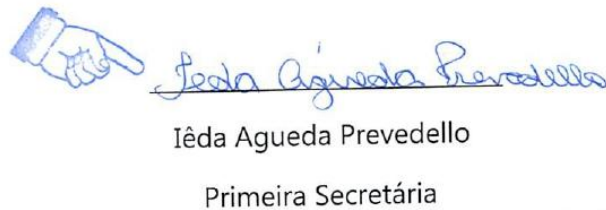 Ieda Agueda Prevedello
Iêda Agueda Prevedello
Primeira Secretária